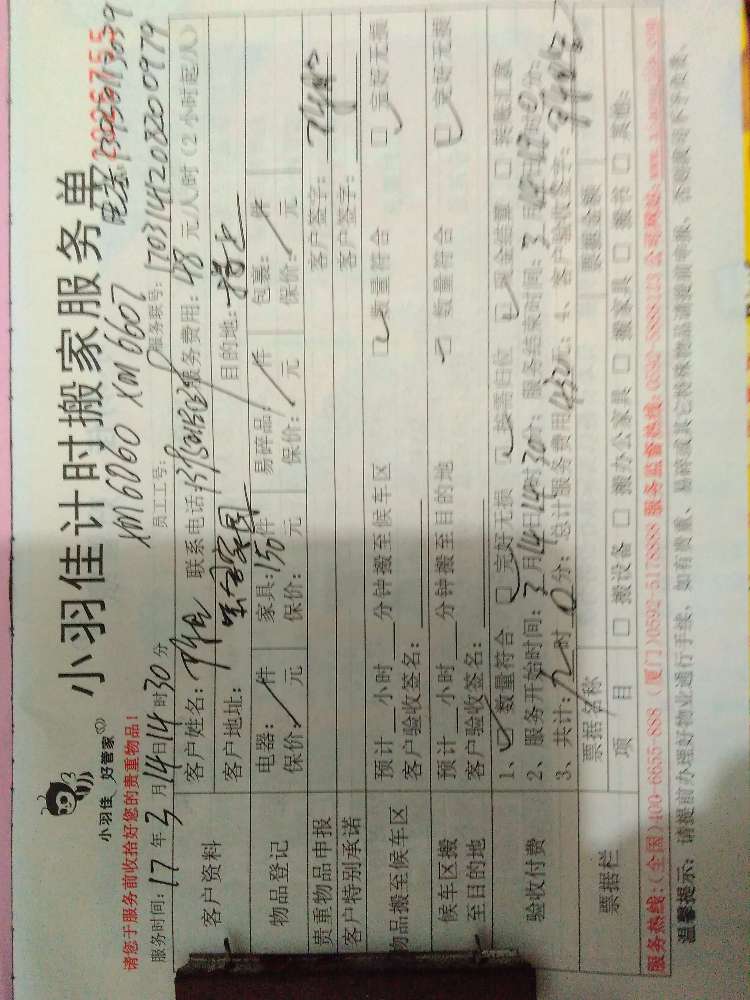 小羽佳 好管家
小羽佳计时搬家服务单
2026755
XM6060 XM6607
请您于服务前收拾好您的贵重物品！
服务时间：17年3月14日14时30分 员工工号： 服务联号：170314142032200979
客户资料
客户姓名： 联系电话： 服务费用：48元/人/时（2小时起/人）
客户地址： 目的地：
物品登记
电器：/件 家具：150件 易碎品：/件 包裹：/件
保价：/元 保价：元 保价：元 保价：/元
贵重物品申报 客户签字：
客户特别承诺 客户签字：
物品搬至候车区
预计__小时__分钟搬至候车区 □数量符合 □完好无损
客户验收签名：
候车区搬至目的地
预计__小时__分钟搬至目的地 □数量符合 □完好无损
客户验收签名：
验收付费
1、□数量符合 □完好无损 □按需归位 □现金结算 □转账汇款
2、服务开始时间：3月14日14时30分；服务结束时间：3月 日 时 分；
3、共计： 时0分；总计服务费用 元；4、客户验收签字：
票据栏
票据名称 票据金额
项目 □搬设备 □搬办公家具 □搬家具 □搬书 □其他：
服务热线：(全国)400-6655-888 (厦门)0592-5178888 服务监督热线：0592-5888123 公司网址：
温馨提示：请提前办理好物业通行手续，如有贵重、易碎或其它特殊物品请提前申报，否则我司不予负责。